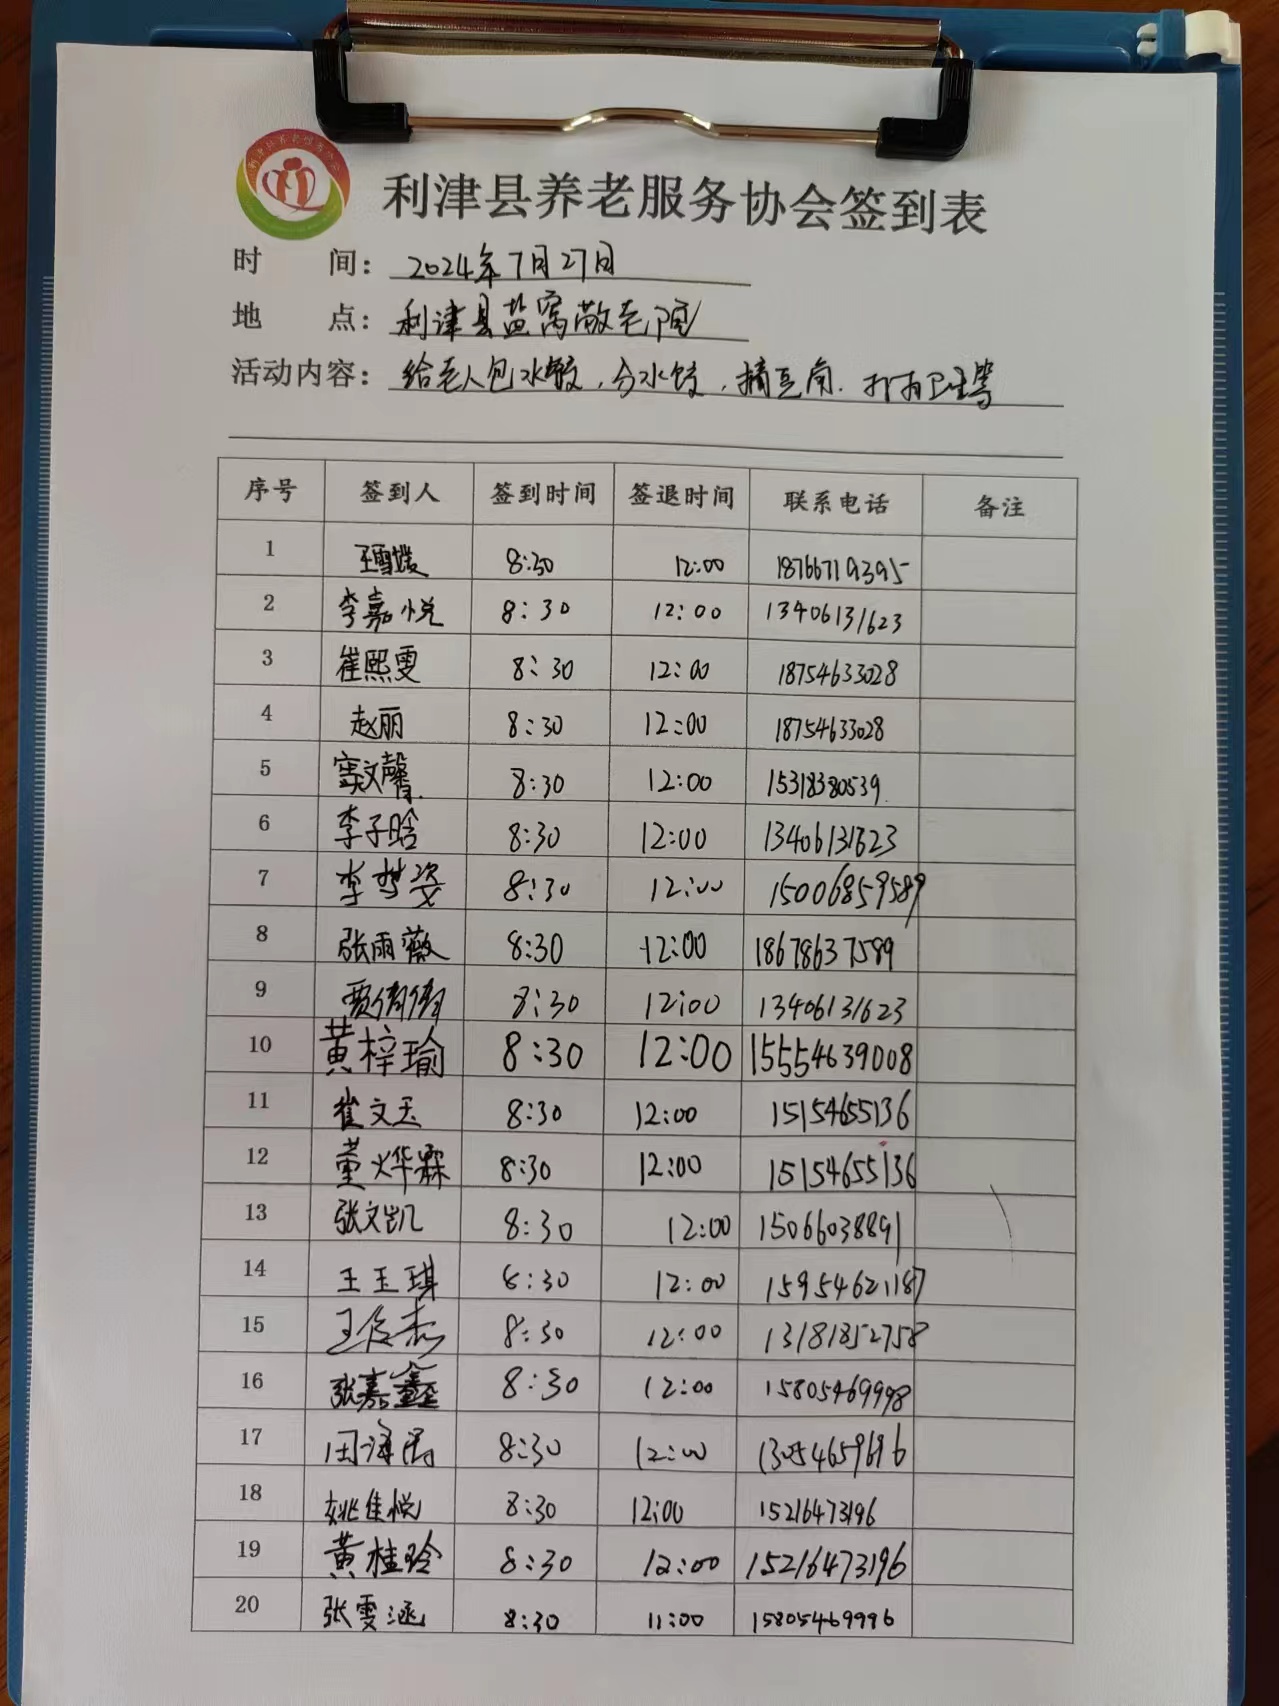 利津县养老服务协会签到表
时 间: 2024年7月27日
地 点: 利津县盐窝敬老院
活动内容: 给老人包水饺、分水饺、摘豆角、打扫卫生等
序号 签到人 签到时间 签退时间 联系电话 备注
1 王雪媛 8:30 12:00 18766719395
2 李嘉悦 8:30 12:00 13406131623
3 崔熙雯 8:30 12:00 18754633028
4 赵丽 8:30 12:00 18754633028
5 窦文馨 8:30 12:00 15318380539
6 李子晗 8:30 12:00 13406131623
7 李梦姿 8:30 12:00 15006859589
8 张雨薇 8:30 12:00 18678637589
9 贾倩倩 8:30 12:00 13406131623
10 黄梓瑜 8:30 12:00 15554639008
11 崔文玉 8:30 12:00 15154655136
12 董烨霖 8:30 12:00 15154655136
13 张文凯 8:30 12:00 15066038891
14 王玉琪 8:30 12:00 15954621187
15 王俊杰 8:30 12:00 13181852758
16 张嘉鑫 8:30 12:00 15805469998
17 田 8:30 12:00 13054659696
18 姚佳悦 8:30 12:00 15216473196
19 黄桂玲 8:30 12:00 15216473196
20 张雯涵 8:30 11:00 15805469996